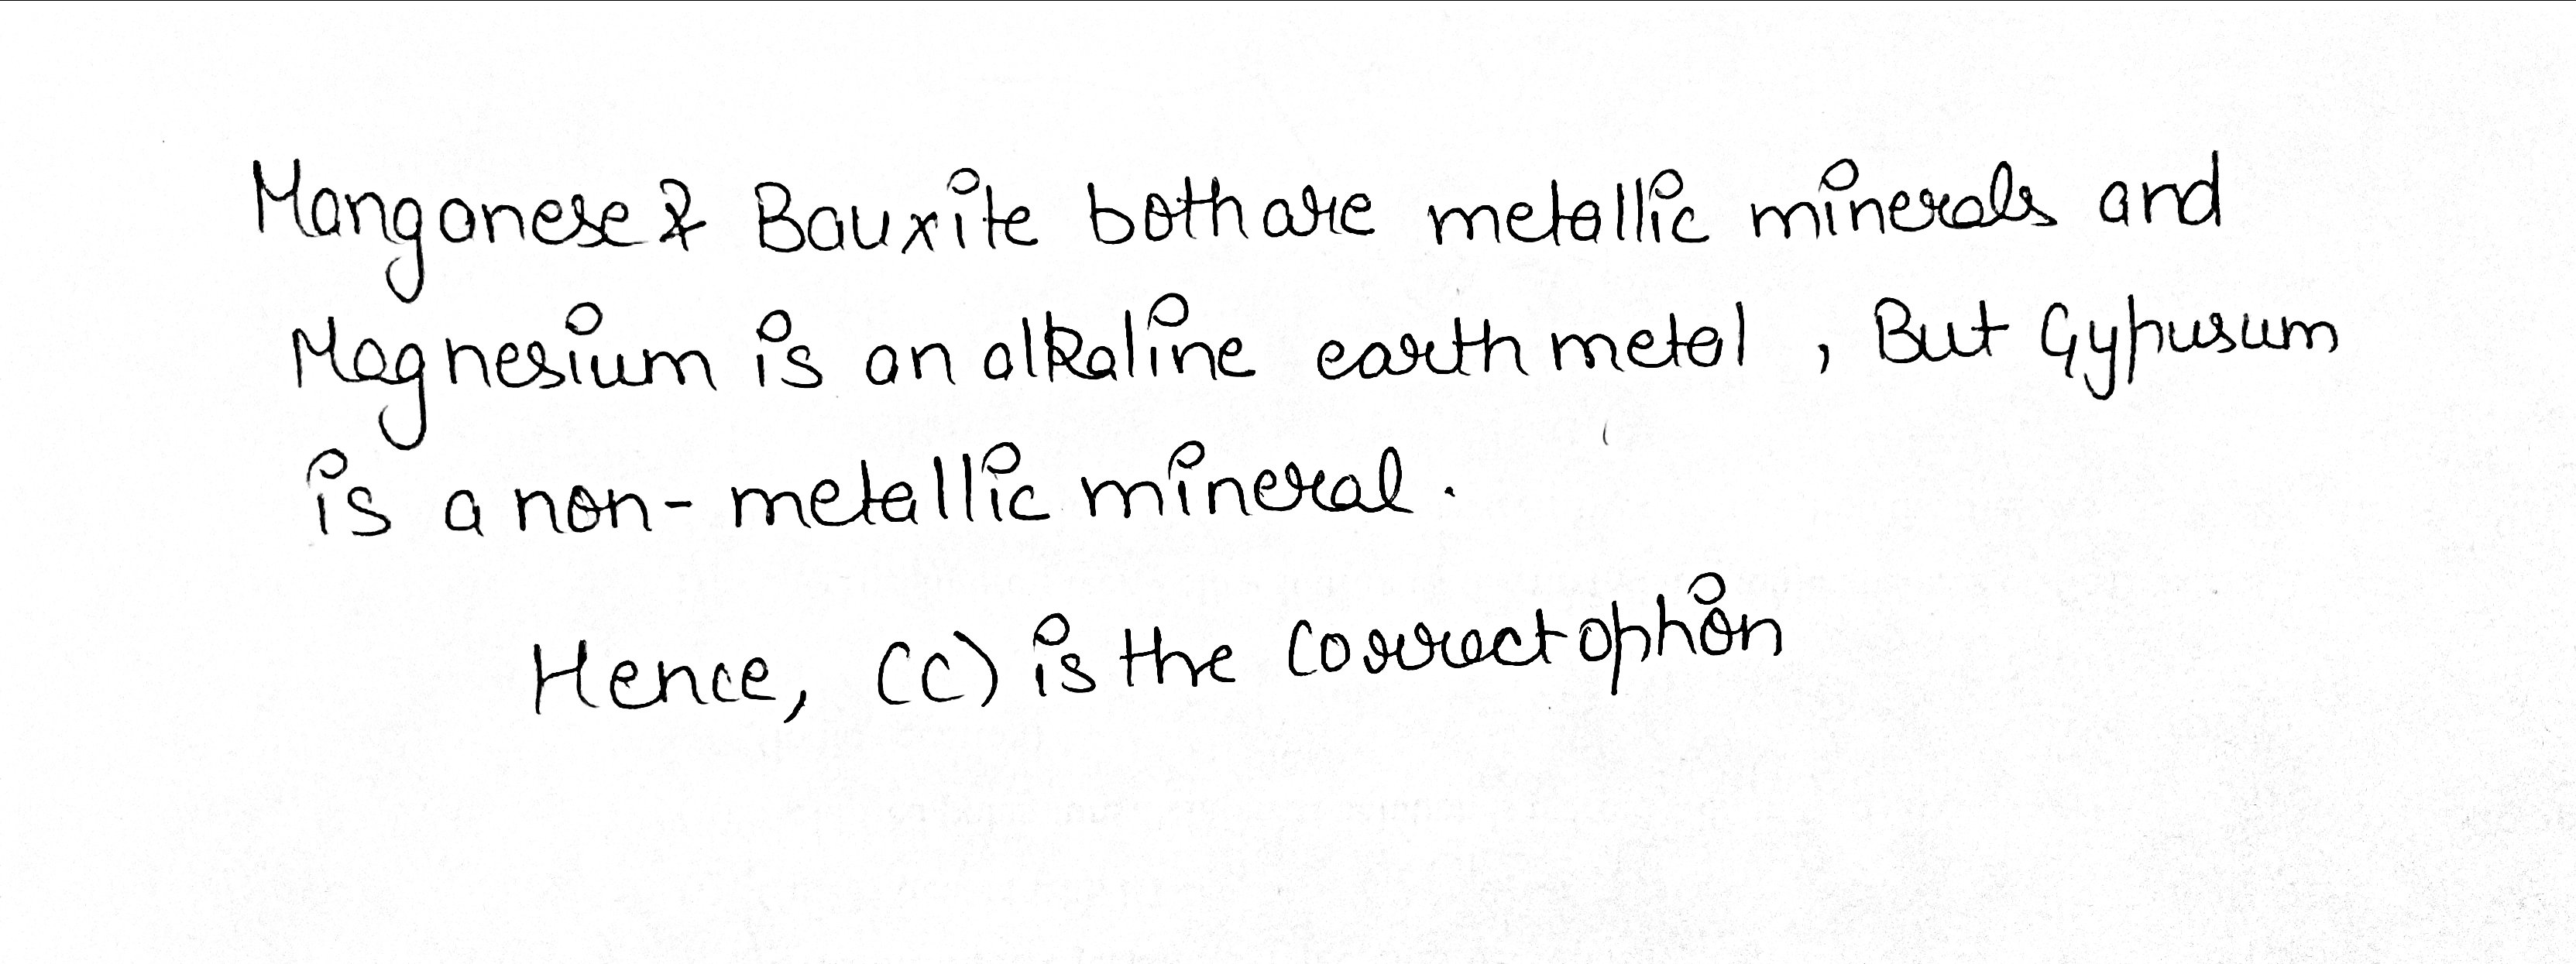 Manganese & Bauxite both are metallic minerals and
Magnesium is an alkaline earth metal , But Gypusum
is a non-metallic mineral.
Hence, (C) is the correct option